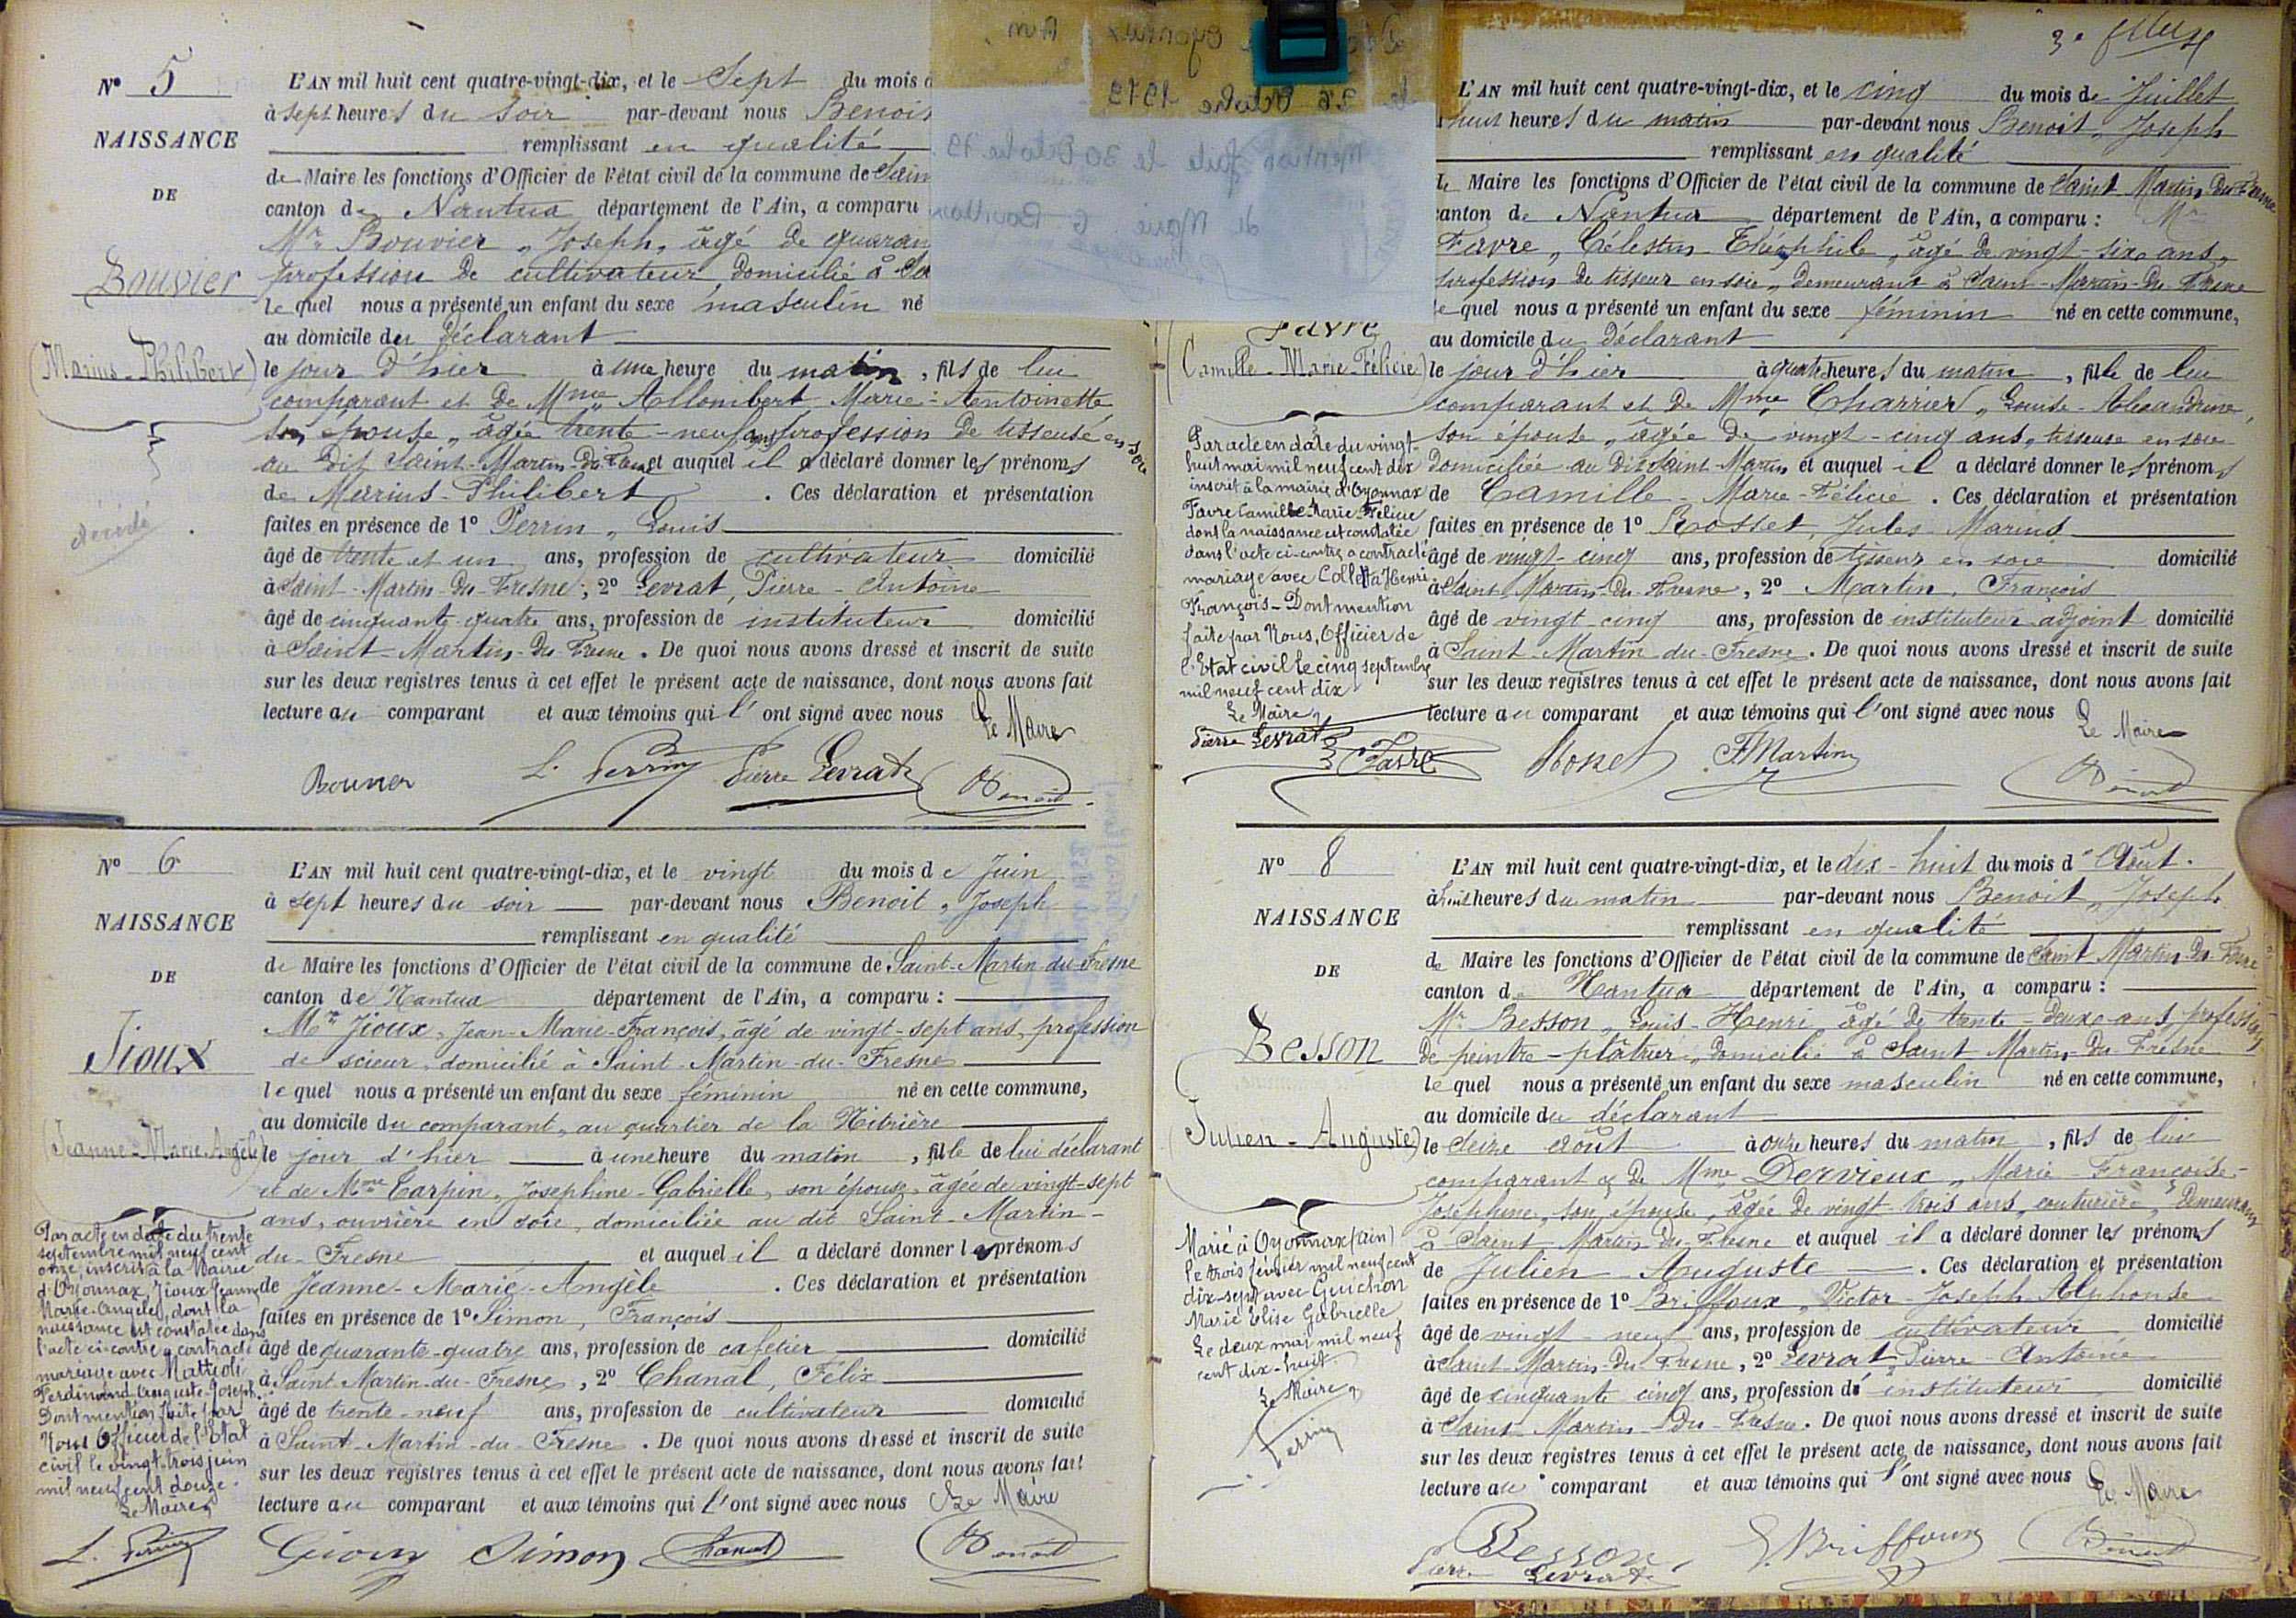 N° 5
NAISSANCE
DE
Bouvier
(Marius-Philibert)
décédé
L'AN mil huit cent quatre-vingt-dix, et le Sept du mois d
à sept heures du soir par-devant nous Benoit
remplissant en qualité
de Maire les fonctions d'Officier de l'état civil de la commune de Sain
canton de Nantua département de l'Ain, a comparu
Mr Bouvier, Joseph, âgé de quaran
profession de cultivateur domicilié à Sa
lequel nous a présenté un enfant du sexe masculin né
au domicile du déclarant
le jour d'hier à une heure du matin, fils de lui
comparant et de Mme Allombert Marie-Antoinette
son épouse, âgée trente-neuf ans profession de tisseuse en soie
au dit Saint-Martin-du-Fresne et auquel il a déclaré donner les prénoms
de Marius-Philibert. Ces déclaration et présentation
faites en présence de 1° Perrin, Louis
âgé de trente et un ans, profession de cultivateur domicilié
à Saint-Martin-du-Fresne; 2° Levrat, Pierre-Antoine
âgé de cinquante-quatre ans, profession de instituteur domicilié
à Saint-Martin-du-Fresne. De quoi nous avons dressé et inscrit de suite
sur les deux registres tenus à cet effet le présent acte de naissance, dont nous avons fait
lecture au comparant et aux témoins qui l'ont signé avec nous Le Maire
Bouvier L. Perrin Pierre Levrat Benoit
N° 6
NAISSANCE
DE
Jioux
(Jeanne-Marie-Angèle)
Par acte en date du trente
septembre mil neuf cent
onze, inscrit à la Mairie
d'Oyonnax, Jioux Jeanne
Marie-Angèle, dont la
naissance est constatée dans
l'acte ci-contre a contracté
mariage avec Mattioli
Ferdinand Auguste-Joseph.
Dont mention faite par
Nous Officier de l'Etat
civil le vingt-trois juin
mil neuf cent douze.
Le Maire
L. Perrin
L'AN mil huit cent quatre-vingt-dix, et le vingt du mois de Juin
à sept heures du soir par-devant nous Benoit, Joseph
remplissant en qualité
de Maire les fonctions d'Officier de l'état civil de la commune de Saint-Martin-du-Fresne
canton de Nantua département de l'Ain, a comparu :
Mr Jioux, Jean-Marie-François, âgé de vingt-sept ans, profession
de scieur, domicilié à Saint-Martin-du-Fresne
lequel nous a présenté un enfant du sexe féminin né en cette commune,
au domicile du comparant, au quartier de la Nitrière
le jour d'hier à une heure du matin, fille de lui déclarant
et de Mme Carpin, Josephine-Gabrielle, son épouse, âgée de vingt-sept
ans, ouvrière en soie, domiciliée au dit Saint-Martin-
du-Fresne et auquel il a déclaré donner les prénoms
de Jeanne-Marie-Angèle. Ces déclaration et présentation
faites en présence de 1° Simon, François
âgé de quarante-quatre ans, profession de cafetier domicilié
à Saint-Martin-du-Fresne, 2° Chanal, Félix
âgé de trente-neuf ans, profession de cultivateur domicilié
à Saint-Martin-du-Fresne. De quoi nous avons dressé et inscrit de suite
sur les deux registres tenus à cet effet le présent acte de naissance, dont nous avons fait
lecture au comparant et aux témoins qui l'ont signé avec nous Le Maire
Simon Chanal Benoit
Favre
(Camille-Marie-Félicie)
Par acte en date du vingt-
huit mai mil neuf cent dix
inscrit à la mairie d'Oyonnax
Favre Camille-Marie-Félicie
dont la naissance est constatée
dans l'acte ci-contre a contracté
mariage avec Colletta Henri
François - Dont mention
faite par Nous, Officier de
l'Etat civil le cinq septembre
mil neuf cent dix
Le Maire,
Pierre Levrat
L'AN mil huit cent quatre-vingt-dix, et le cinq du mois de Juillet
heures du matin par-devant nous Benoit, Joseph
remplissant en qualité
de Maire les fonctions d'Officier de l'état civil de la commune de Saint Martin du Fresne
canton de Nantua département de l'Ain, a comparu : Mr
Favre, Célestin-Théophile, âgé de vingt-six ans,
profession de tisseur en soie, demeurant à Saint-Martin-du-Fresne
lequel nous a présenté un enfant du sexe féminin né en cette commune,
au domicile du déclarant
le jour d'hier à quatre heures du matin, fille de lui
comparant et de Mme Charrier, Louise-Alexandrine,
son épouse, âgée de vingt-cinq ans, tisseuse en soie
domiciliée au dit Saint-Martin et auquel il a déclaré donner les prénoms
de Camille-Marie-Félicie. Ces déclaration et présentation
faites en présence de 1° Rosset, Jules-Marius
âgé de vingt-cinq ans, profession de tisseur en soie domicilié
à Saint-Martin-du-Fresne, 2° Martin, François
âgé de vingt-cinq ans, profession de instituteur-adjoint domicilié
à Saint-Martin du-Fresne. De quoi nous avons dressé et inscrit de suite
sur les deux registres tenus à cet effet le présent acte de naissance, dont nous avons fait
lecture au comparant et aux témoins qui l'ont signé avec nous Le Maire
Favre Rosset F Martin Benoit
N° 8
NAISSANCE
DE
Besson
(Julien-Auguste)
Marié à Oyonnax (Ain)
le trois février mil neuf cent
dix-sept avec Guichon
Marie Elise Gabrielle
Le deux mai mil neuf
cent dix-huit.
Le Maire,
Perrin
L'AN mil huit cent quatre-vingt-dix, et le dix-huit du mois d'Août.
à huit heures du matin par-devant nous Benoit, Joseph
remplissant en qualité
de Maire les fonctions d'Officier de l'état civil de la commune de Saint Martin-du-Fresne
canton de Nantua département de l'Ain, a comparu :
Mr Besson, Louis-Henri âgé de trente-deux ans, profession
de peintre-plâtrier, domicilié à Saint Martin-du-Fresne
lequel nous a présenté un enfant du sexe masculin né en cette commune,
au domicile du déclarant
le seize août à onze heures du matin, fils de lui
comparant & de Mme Dervieux, Marie-Françoise-
Josephine, son épouse, âgée de vingt trois ans, couturière, demeurant
à Saint Martin-du-Fresne et auquel il a déclaré donner les prénoms
de Julien Auguste. Ces déclaration et présentation
faites en présence de 1° Briffoux, Victor-Joseph Alphonse
âgé de vingt-neuf ans, profession de cultivateur domicilié
à Saint-Martin-du-Fresne, 2° Levrat, Pierre Antoine
âgé de cinquante cinq ans, profession de instituteur domicilié
à Saint-Martin-du-Fresne. De quoi nous avons dressé et inscrit de suite
sur les deux registres tenus à cet effet le présent acte de naissance, dont nous avons fait
lecture au comparant et aux témoins qui l'ont signé avec nous Le Maire
Besson Briffoux Benoit
Pierre Levrat